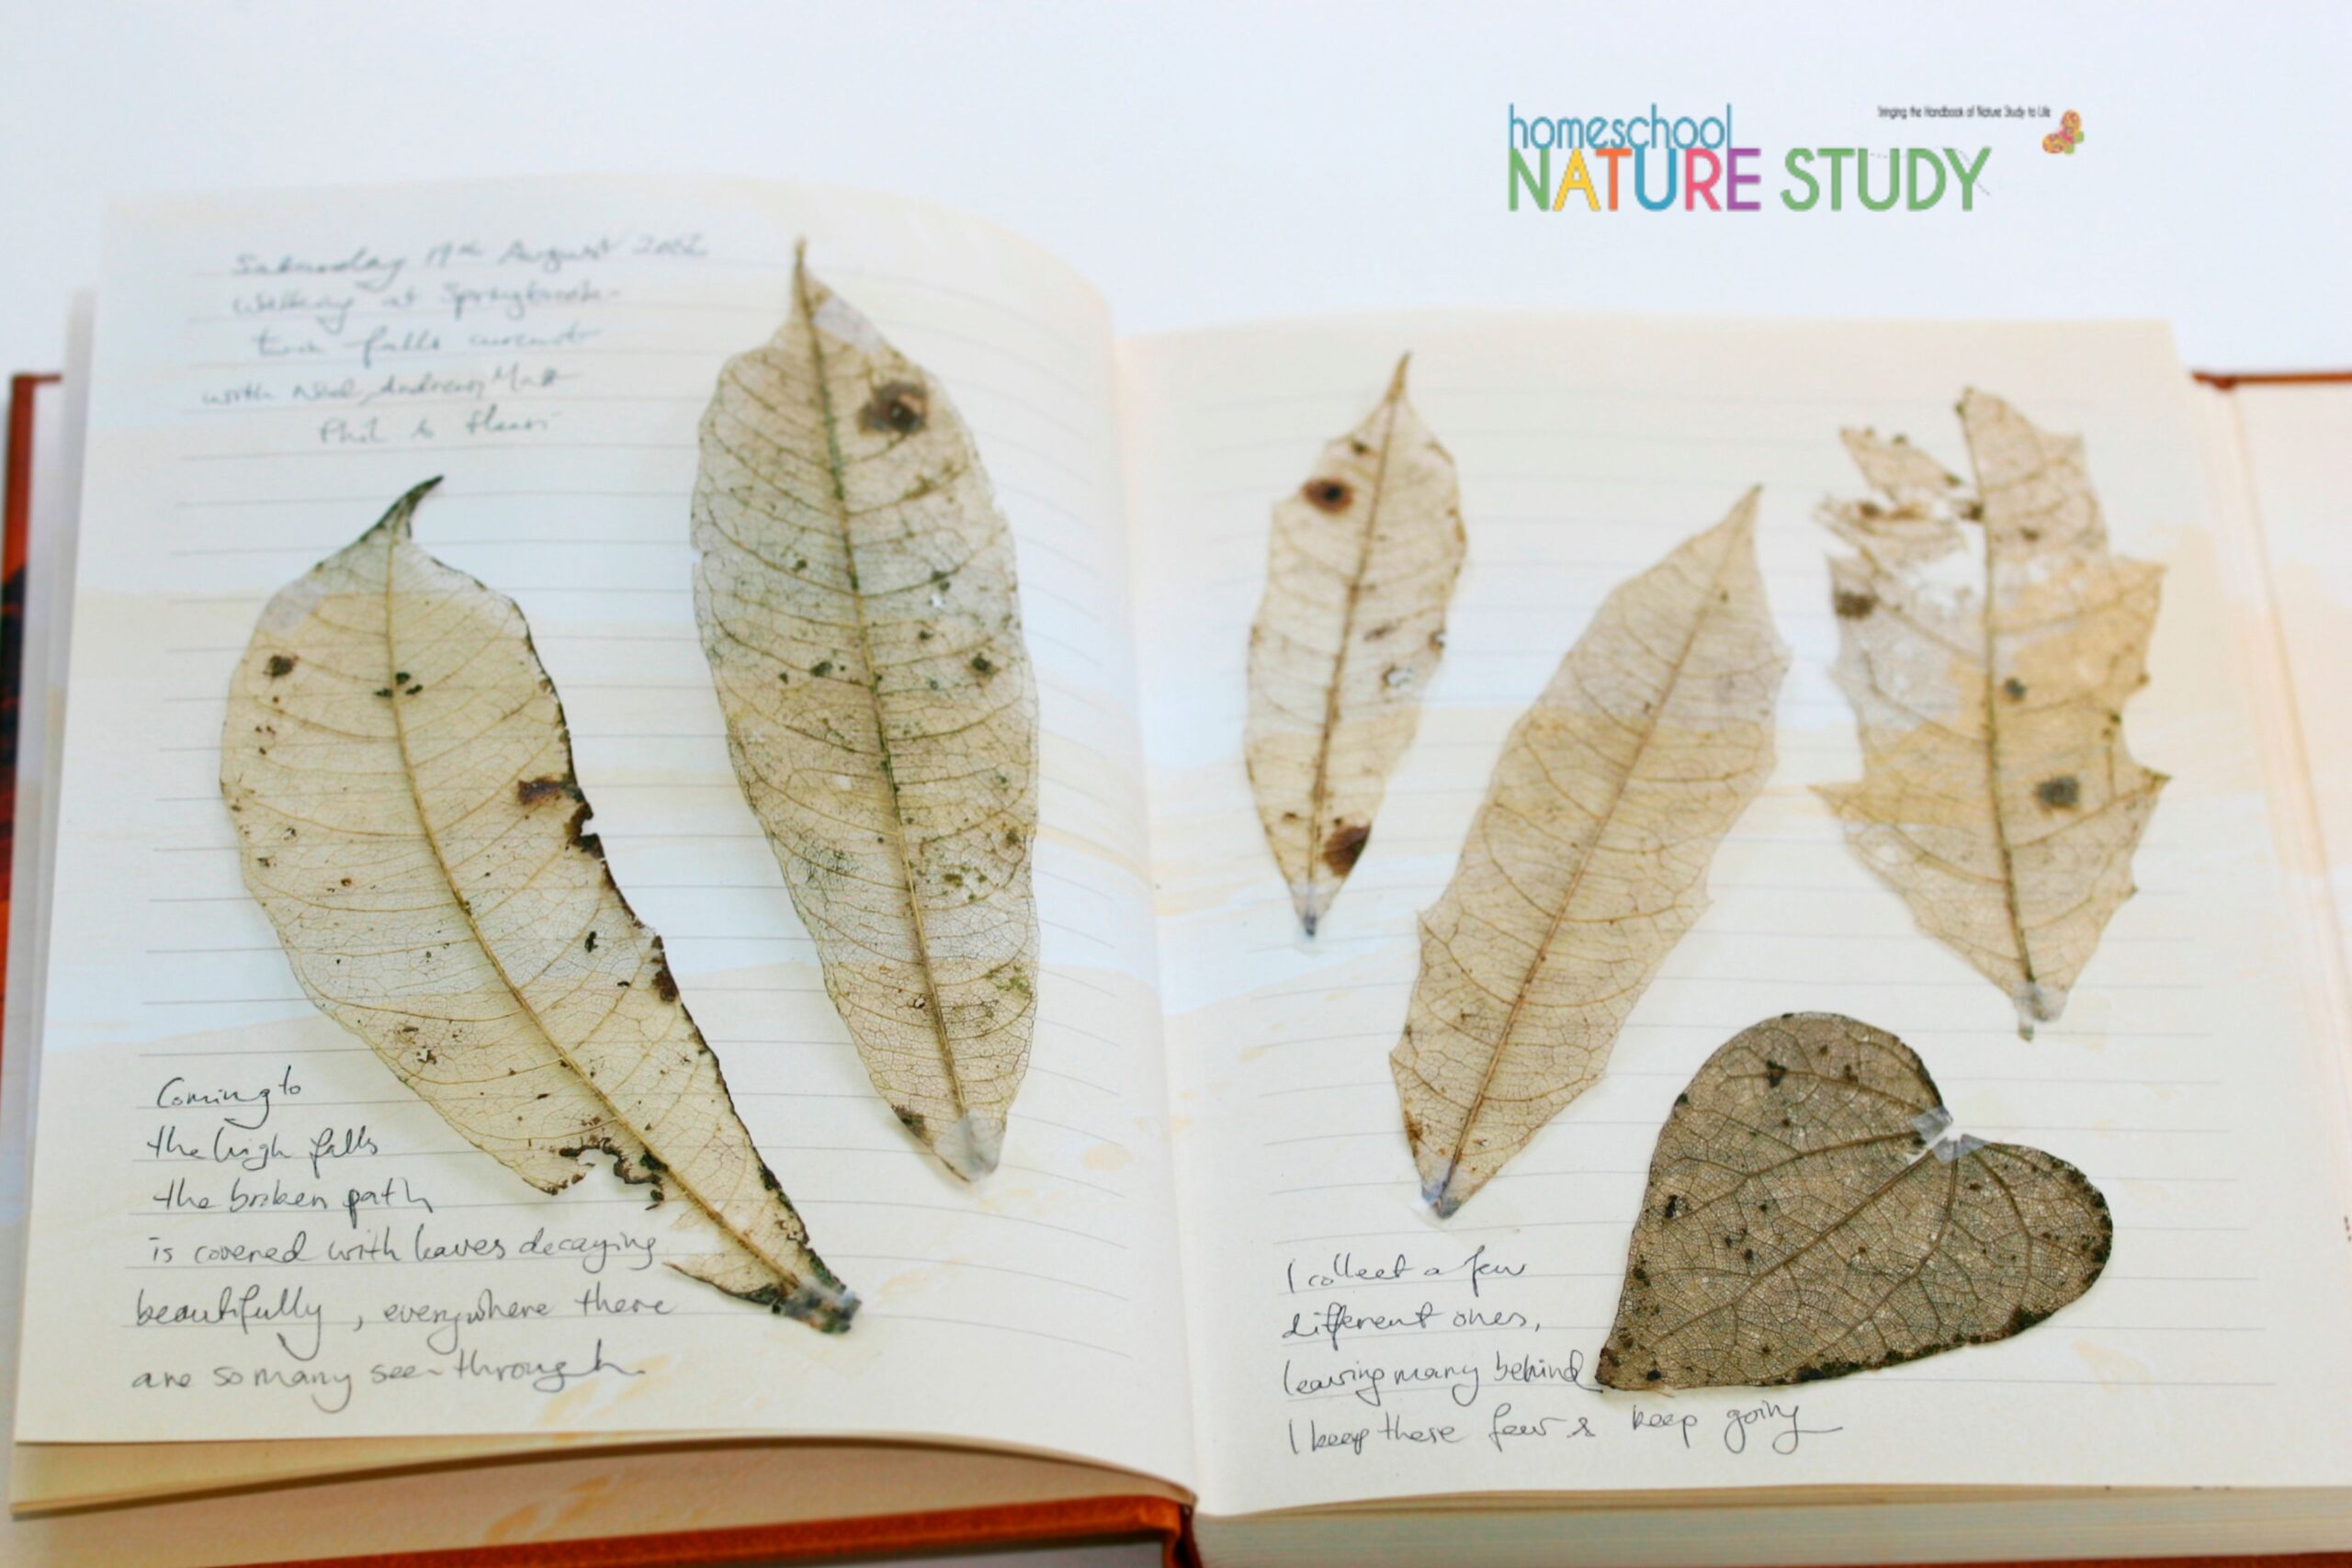 Saturday 19th August 2002
Walking at Springbrook-
twin falls circuit
with Andrew, Matt
Phil &
Coming to
the high falls
the broken path
is covered with leaves decaying
beautifully, everywhere there
are so many see-through.
homeschool
NATURE STUDY
Bringing the Handbook of Nature Study to Life
I collect a few
different ones,
leaving many behind
I keep these few & keep going